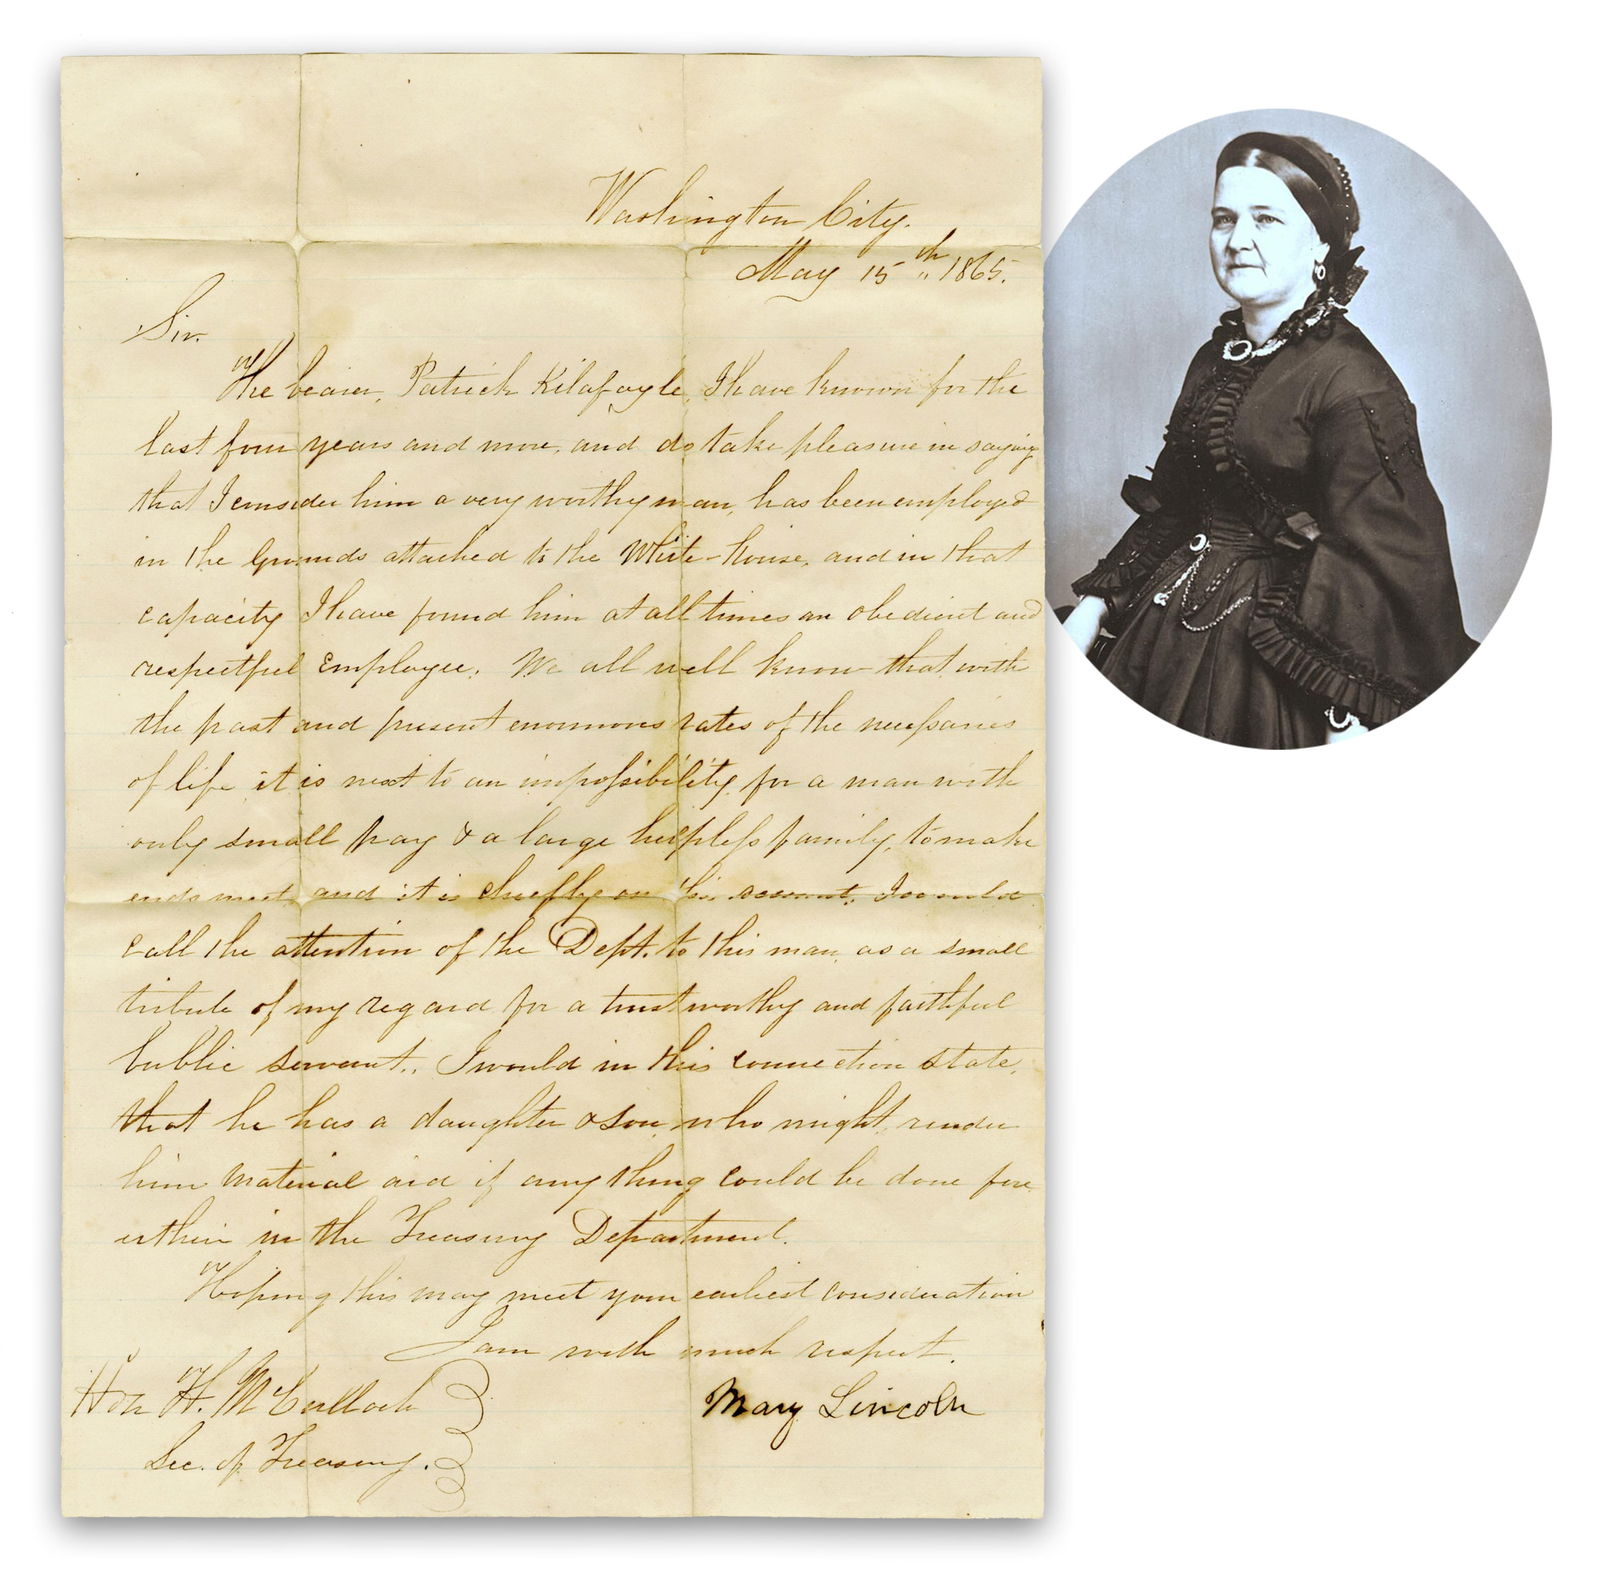 Washington City.
May 15th 1865.
Sir.
The bearer, Patrick Kilafoyle, I have known for the
last four years and more, and do take pleasure in saying
that I consider him a very worthy man, has been employed
in the Grounds attached to the White-house, and in that
capacity I have found him at all times an obedient and
respectful Employee. We all well know that, with
the past and present enormous rates of the necessaries
of life it is next to an impossibility for a man with
only small pay & a large helpless family, to make
ends meet, and it is chiefly on this account, I would
call the attention of the Dept. to this man, as a small
tribute of my regard for a trustworthy and faithful
public servant. I would in this connection state,
that he has a daughter & son who might render
him material aid if any thing could be done for
either in the Treasury Department.
Hoping this may meet your earliest consideration
I am with much respect.
Mary Lincoln
Hon H. McCulloch
Sec. of Treasury.